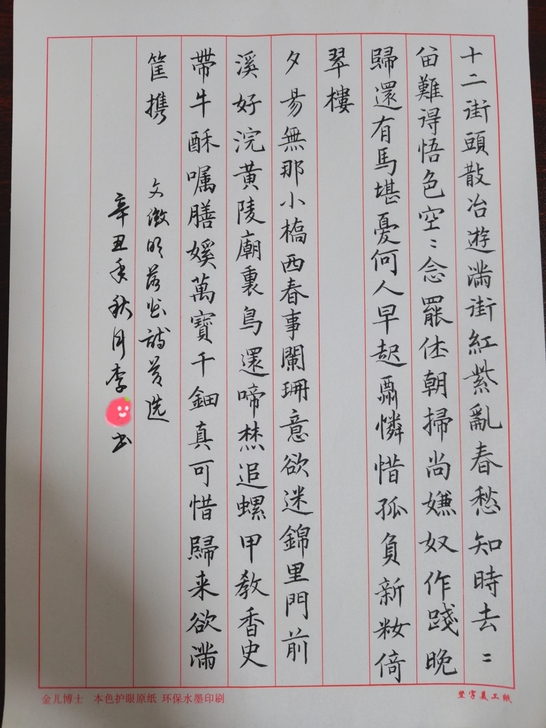 十二街頭散冶遊滿街紅紫亂春愁知時去〻
畄難得悟色空〻念罷休朝掃尚嫌奴作踐晚
歸還有馬堪憂何人早起憐惜孤負新妝倚
翠樓
夕昜無那小橋西春事闌珊意欲迷錦里門前
溪好浣黃陵廟裏鳥還啼焚追螺甲教香史
帶牛酥囑膳㜎萬寶千鈿真可惜歸来欲滿
筐携
文徵明落花詩選
辛丑年秋月李书
金儿博士 本色护眼原纸 环保水墨印刷
堂字美工紙